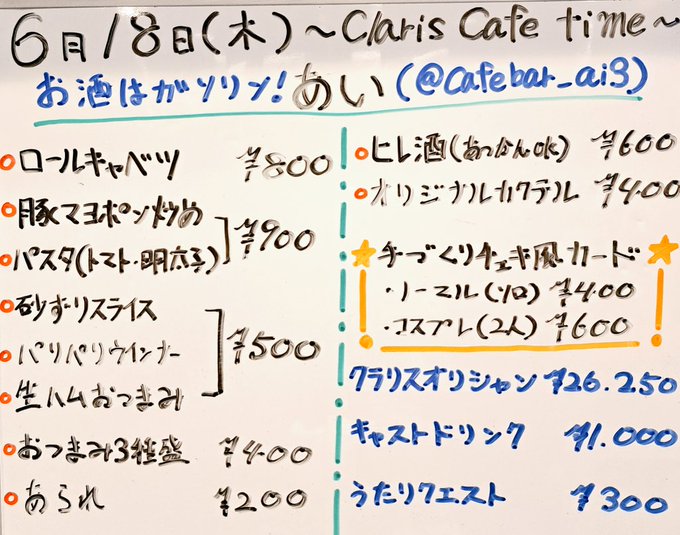 6月18日(木)～Claris Cafe time～
お酒はガソリン!あい(@cafebar_ai3)
ロールキャベツ ¥800
豚マヨポン炒め
パスタ(トマト・明太子) ¥900
砂ずりスライス
パリパリウインナー ¥500
生ハムおつまみ
おつまみ3種盛 ¥400
あられ ¥200
ヒレ酒(あつかんok) ¥600
オリジナルカクテル ¥400
手づくりチェキ風カード
・ノーマル(ソロ) ¥400
・コスプレ(2人) ¥600
クラリスオリシャン ¥26.250
キャストドリンク ¥1.000
うたリクエスト ¥300